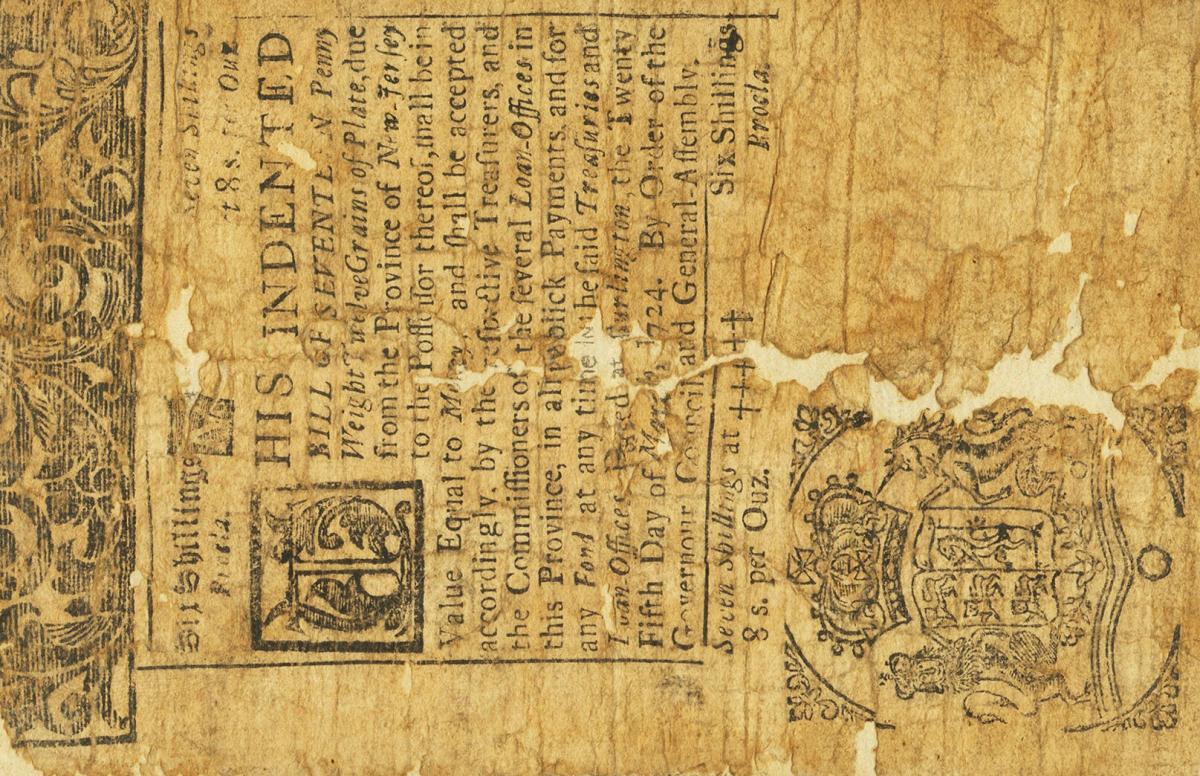 Six Shillings Seven Shillings
Procla. t 8 s. per Ouz.
THIS INDENTED
BILL OF SEVENTEEN Penny
Weight Twelve Grains of Plate, due
from the Province of New-Jersey
to the Possessor thereof, shall be in
Value Equal to Money, and shall be accepted
accordingly, by the respective Treasurers, and
the Commissioners of the several Loan-Offices in
this Province, in all publick Payments, and for
any Fond at any time in the said Treasuries and
Loan Offices. Dated at Burlington, the Twenty
Fifth Day of March, 1724. By Order of the
Governour, Council, and General-Assembly.
Seven Shillings at ‡‡‡‡‡ Six Shillings
8 s. per Ouz. Procla.